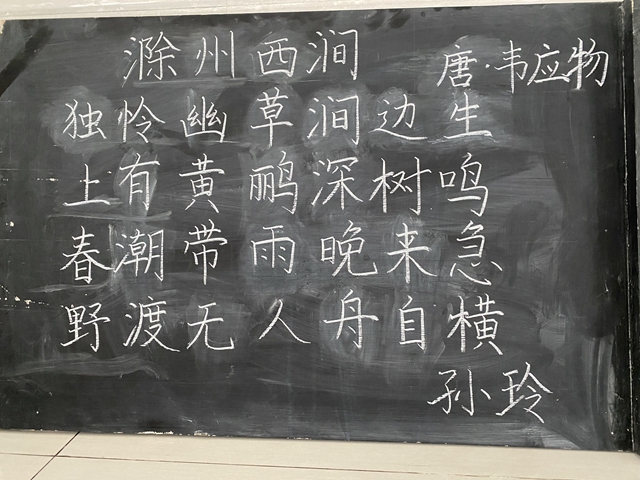 滁州西涧
唐·韦应物
独怜幽草涧边生
上有黄鹂深树鸣
春潮带雨晚来急
野渡无人舟自横
孙玲